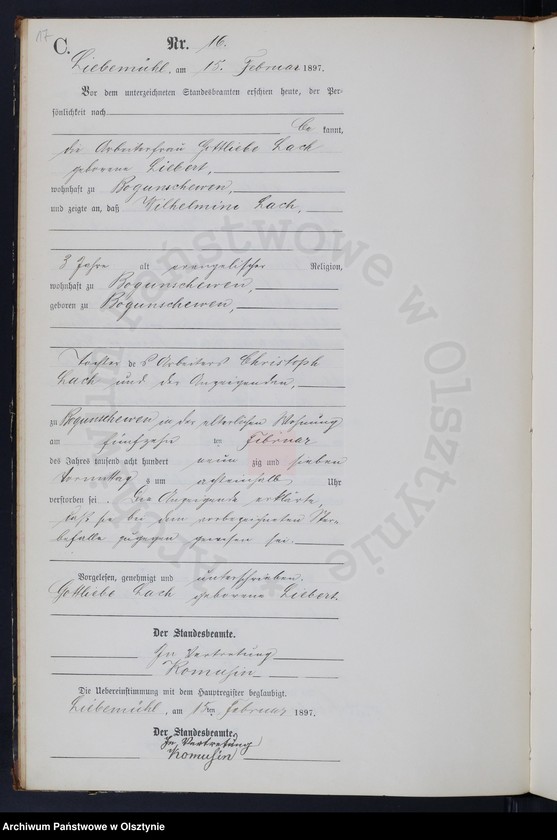 117
C.
Nr. 16.
Liebemühl, am 15. Februar 1897.
Vor dem unterzeichneten Standesbeamten erschien heute, der Per-
sönlichkeit nach
be kannt,
die Arbeiterfrau Gottliebe Lach
geborene Liebert,
wohnhaft zu Bogunschewen,
und zeigte an, daß Wilhelmine Lach,
3 Jahre alt evangelischer Religion,
wohnhaft zu Bogunschewen,
geboren zu Bogunschewen,
Tochter des Arbeiters Christoph
Lach und der Anzeigenden,
zu Bogunschewen in der elterlichen Wohnung
am fünfzehn ten Februar
des Jahres tausend acht hundert neun zig und sieben
Vormittag s um Uhr
verstorben sei. Die Anzeigende erklärte,
daß sie bei dem vorbezeichneten Ster-
befalle zugegen gewesen sei.
Vorgelesen, genehmigt und unterschrieben.
Gottliebe Lach geborene Liebert.
Der Standesbeamte.
In Vertretung
Komusin
Die Uebereinstimmung mit dem Hauptregister beglaubigt.
Liebemühl, am 15ten Februar 1897.
Der Standesbeamte.
In Vertretung
Komusin
Archiwum Państwowe w Olsztynie
Archiwum Państwowe w Olsztynie